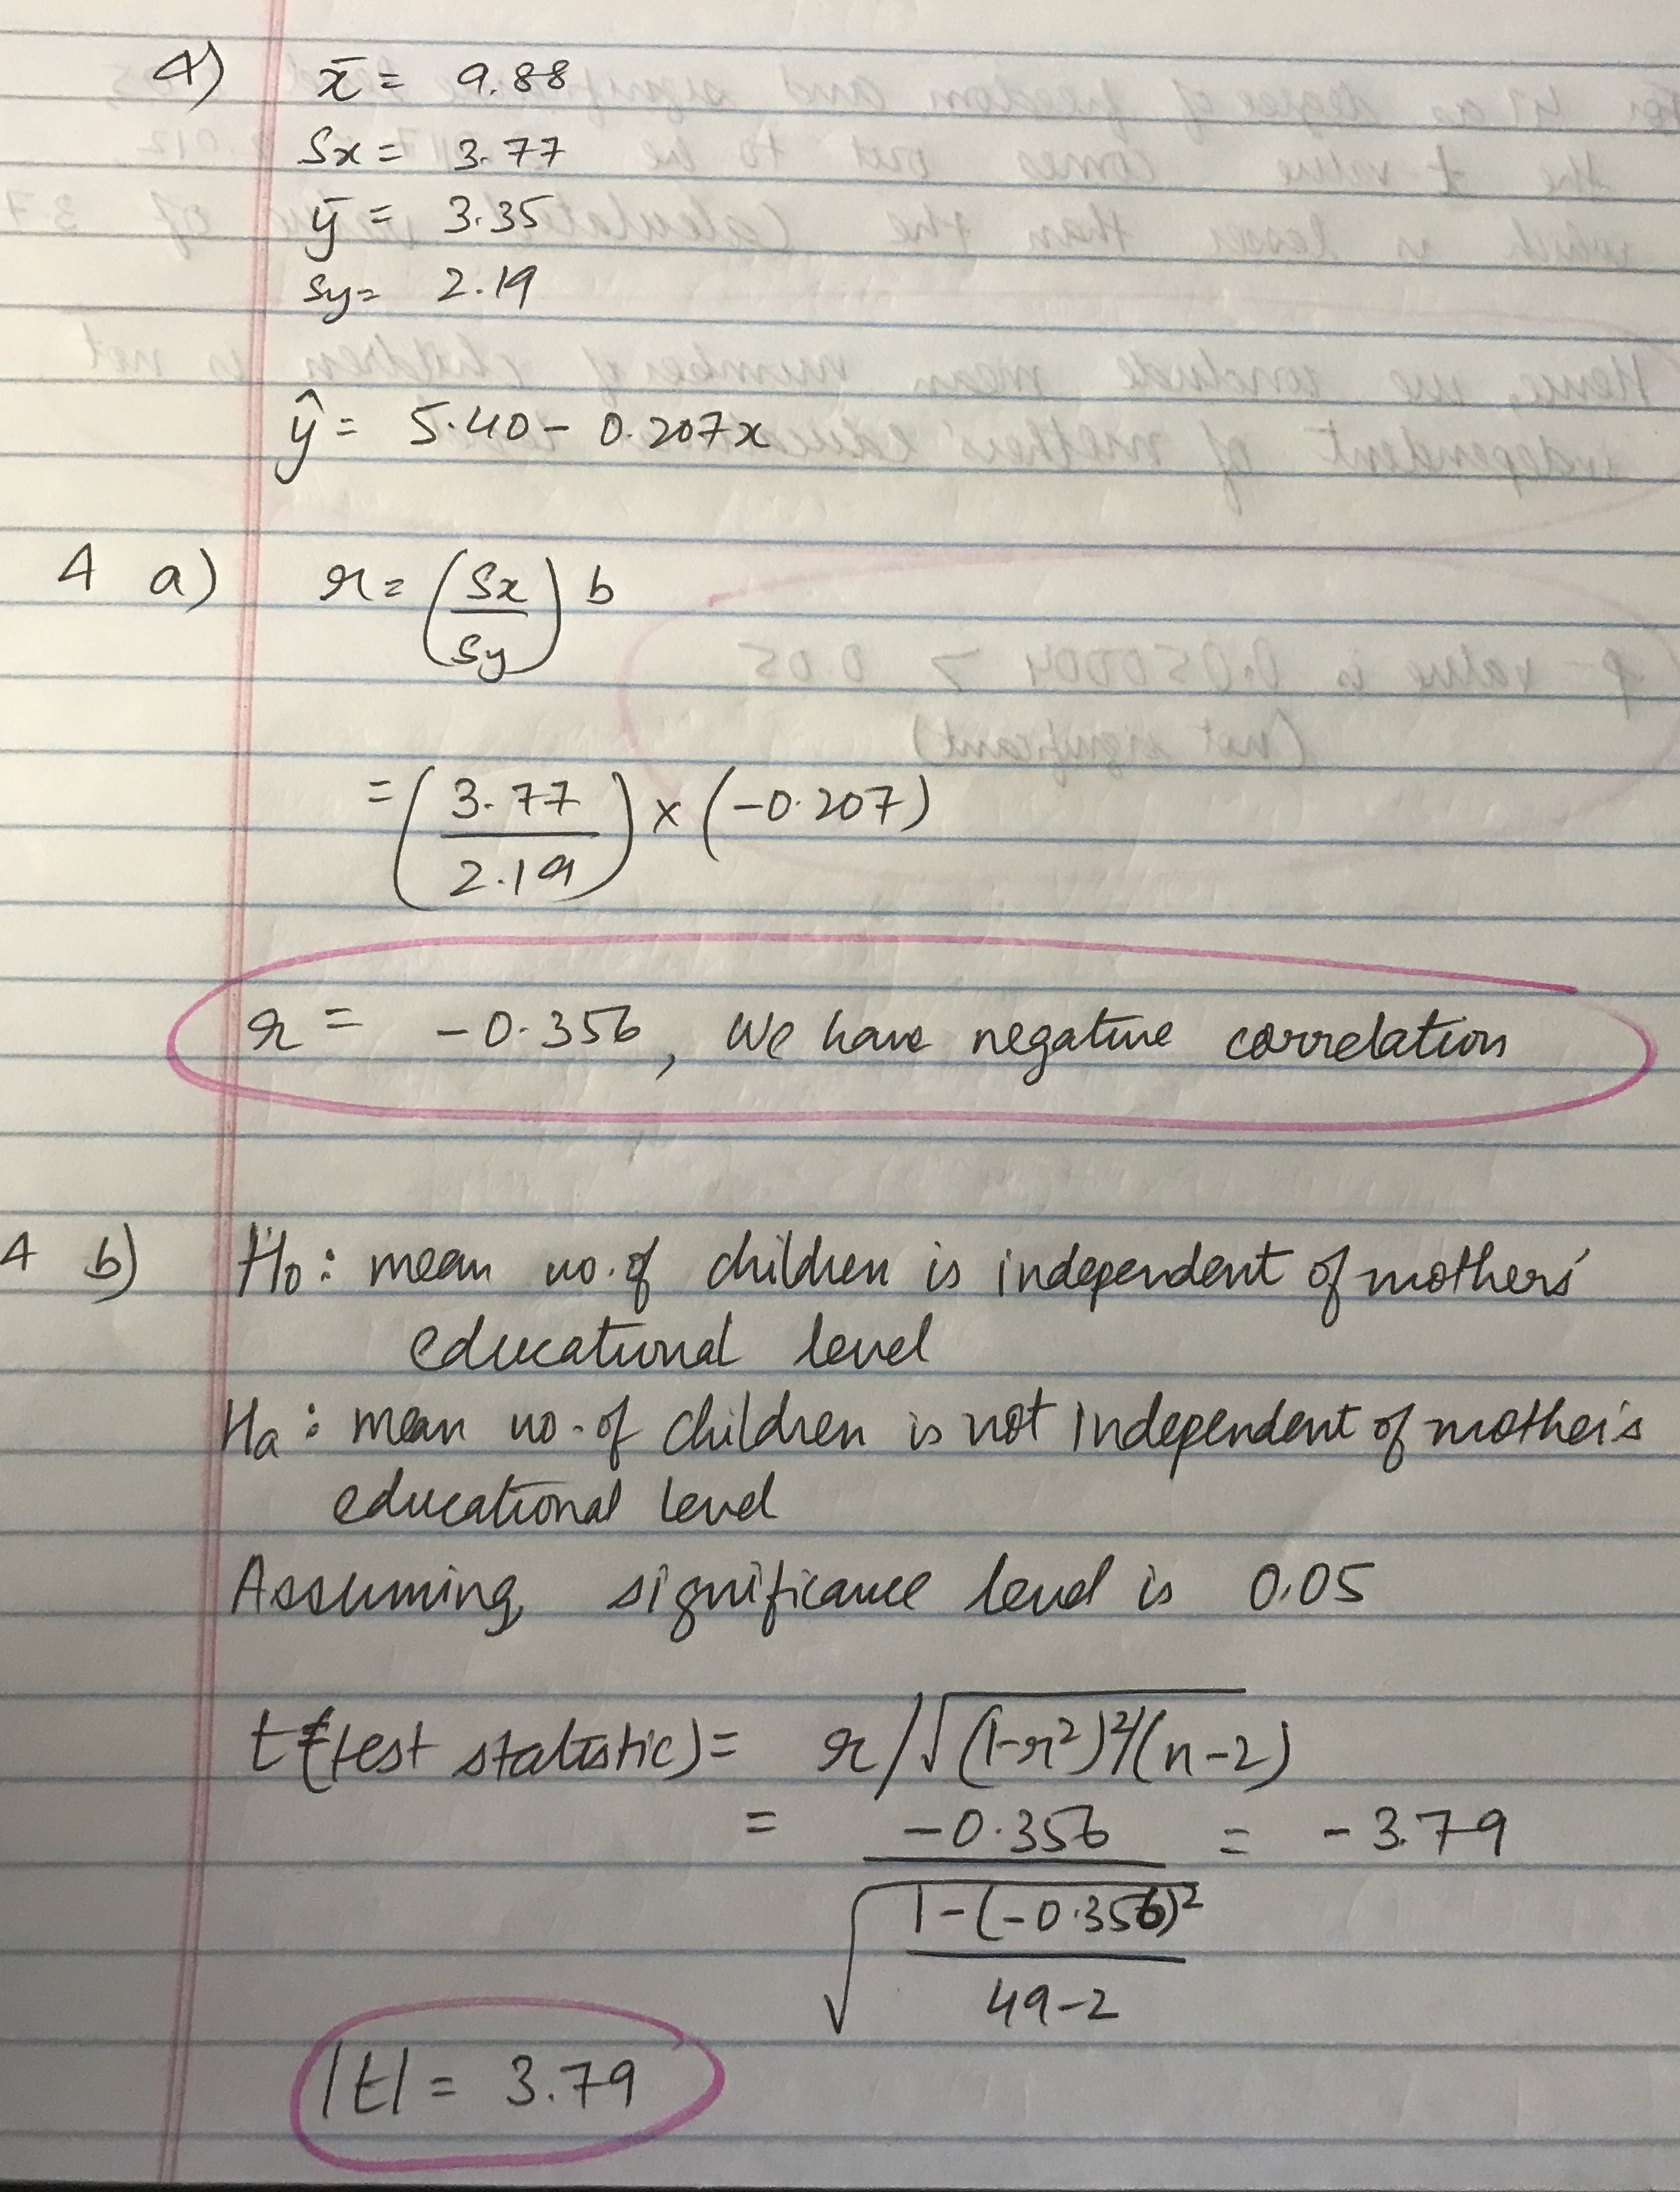 4) x̄ = 9.88
Sx = 3.77
ȳ = 3.35
Sy = 2.19
ŷ = 5.40 - 0.207x
4 a) r = (Sx/Sy) b
= (3.77/2.19) × (-0.207)
r = -0.356, We have negative correlation
4 b) H₀: mean no. of children is independent of mothers'
educational level
Ha: mean no. of children is not independent of mother's
educational level
Assuming, significance level is 0.05
t (test statistic) = r/√(1-r²)²/(n-2)
= -0.356/√((1-(-0.356)²)/(49-2)) = -3.79
|t| = 3.79